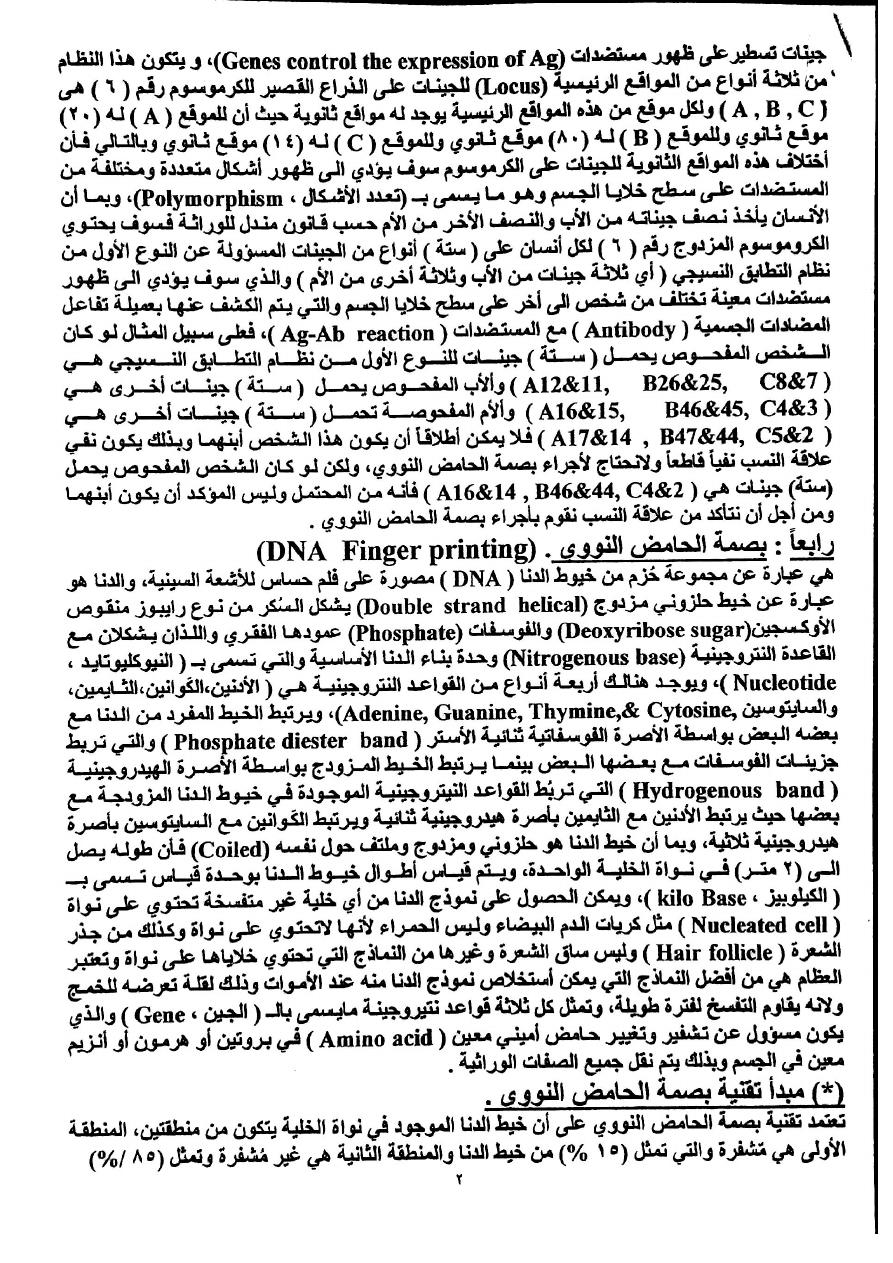 جينات تسطير على ظهور مستضدات (Genes control the expression of Ag)، و يتكون هذا النظام
من ثلاثة أنواع من المواقع الرئيسية (Locus) للجينات على الذراع القصير للكرموسوم رقم ( ٦ ) هى
( A , B , C ) ولكل موقع من هذه المواقع الرئيسية يوجد له مواقع ثانوية حيث أن للموقع ( A ) له (٢٠)
موقع ثانوي وللموقع ( B ) له (٨٠) موقع ثانوي وللموقع ( C ) له (١٤) موقع ثانوي وبالتالي فأن
أختلاف هذه المواقع الثانوية للجينات على الكرموسوم سوف يؤدي الى ظهور أشكال متعددة ومختلفة من
المستضدات على سطح خلايا الجسم وهو ما يسمى بـ (تعدد الأشكال ، Polymorphism)، وبما أن
الأنسان يأخذ نصف جيناته من الأب والنصف الأخر من الأم حسب قانون مندل للوراثة فسوف يحتوي
الكروموسوم المزدوج رقم ( ٦ ) لكل أنسان على ( ستة ) أنواع من الجينات المسؤولة عن النوع الأول من
نظام التطابق النسيجي ( أي ثلاثة جينات من الأب وثلاثة أخرى من الأم ) والذي سوف يؤدي الى ظهور
مستضدات معينة تختلف من شخص الى أخر على سطح خلايا الجسم والتي يتم الكشف عنها بعميلة تفاعل
المضادات الجسمية ( Antibody ) مع المستضدات ( Ag-Ab reaction )، فعلى سبيل المثال لو كان
الشخص المفحوص يحمل ( ستة ) جينات للنوع الأول من نظام التطابق النسيجي هي
( A12&11, B26&25, C8&7 ) والأب المفحوص يحمل ( ستة ) جينات أخرى هي
( A16&15, B46&45, C4&3 ) والأم المفحوصة تحمل ( ستة ) جينات أخرى هي
( A17&14 , B47&44, C5&2 ) فلا يمكن أطلاقاً أن يكون هذا الشخص أبنهما وبذلك يكون نفي
علاقة النسب نفياً قاطعاً ولانحتاج لأجراء بصمة الحامض النووي، ولكن لو كان الشخص المفحوص يحمل
(ستة) جينات هي ( A16&14 , B46&44, C4&2 ) فأنه من المحتمل وليس المؤكد أن يكون أبنهما
ومن أجل أن نتأكد من علاقة النسب نقوم بأجراء بصمة الحامض النووي .
رابعاً : بصمة الحامض النووي . (DNA Finger printing)
هي عبارة عن مجموعة حُزم من خيوط الدنا ( DNA ) مصورة على فلم حساس للأشعة السينية، والدنا هو
عبارة عن خيط حلزوني مزدوج (Double strand helical) يشكل السُكر من نوع رايبوز منقوص
الأوكسجين(Deoxyribose sugar) والفوسفات (Phosphate) عمودها الفقري واللذان يشكلان مع
القاعدة النتروجينية (Nitrogenous base) وحدة بناء الدنا الأساسية والتي تسمى بـ ( النيوكليوتايد ،
Nucleotide )، ويوجد هنالك أربعة أنواع من القواعد النتروجينية هي ( الأدنين،الكَوانين،الثايمين،
والسايتوسين ,Adenine, Guanine, Thymine,& Cytosine)، ويرتبط الخيط المفرد من الدنا مع
بعضه البعض بواسطة الأصرة الفوسفاتية ثنائية الأستر ( Phosphate diester band ) والتي تربط
جزيئات الفوسفات مع بعضها البعض بينما يرتبط الخيط المزودج بواسطة الأصرة الهيدروجينية
( Hydrogenous band ) التي تربُط القواعد النيتروجينية الموجودة في خيوط الدنا المزودجة مع
بعضها حيث يرتبط الأدنين مع الثايمين بأصرة هيدروجينية ثنائية ويرتبط الكَوانين مع السايتوسين بأصرة
هيدروجينية ثلاثية، وبما أن خيط الدنا هو حلزوني ومزدوج وملتف حول نفسه (Coiled) فأن طوله يصل
الى (٢ متر) في نواة الخلية الواحدة، ويتم قياس أطوال خيوط الدنا بوحدة قياس تسمى بـ
( الكيلوبيز ، kilo Base )، ويمكن الحصول على نموذج الدنا من أي خلية غير متفسخة تحتوي على نواة
( Nucleated cell ) مثل كريات الدم البيضاء وليس الحمراء لأنها لاتحتوي على نواة وكذلك من جذر
الشعرة ( Hair follicle ) وليس ساق الشعرة وغيرها من النماذج التي تحتوي خلاياها على نواة وتعتبر
العظام هي من أفضل النماذج التي يمكن أستخلاص نموذج الدنا منه عند الأموات وذلك لقلة تعرضه للخمج
ولانه يقاوم التفسخ لفترة طويلة، وتمثل كل ثلاثة قواعد نتيروجينة مايسمى بالـ ( الجين ، Gene ) والذي
يكون مسؤول عن تشفير وتغيير حامض أميني معين ( Amino acid ) في بروتين أو هرمون أو أنزيم
معين في الجسم وبذلك يتم نقل جميع الصفات الوراثية .
(*) مبدأ تقنية بصمة الحامض النووي .
تعتمد تقنية بصمة الحامض النووي على أن خيط الدنا الموجود في نواة الخلية يتكون من منطقتين، المنطقة
الأولى هي مشفرة والتي تمثل (١٥ %) من خيط الدنا والمنطقة الثانية هي غير مُشفرة وتمثل (٨٥ /%)
٢